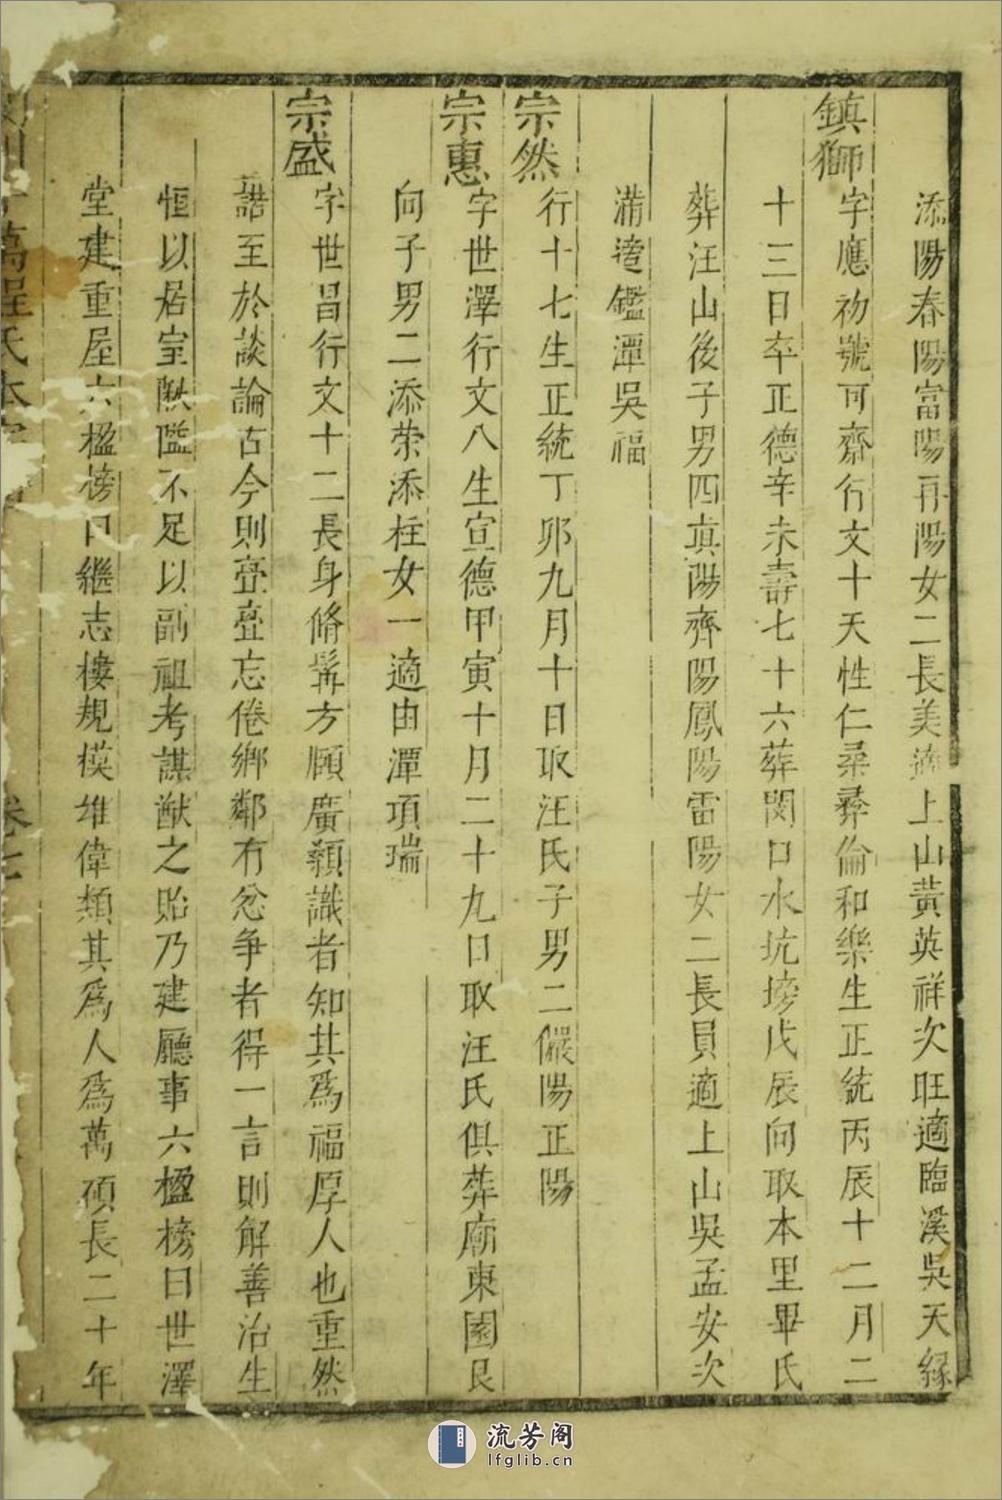 添陽春陽富陽再陽女二長美適上山黃英祥次旺適臨溪吳天緣
鎮獅
字應初號可齋行文十天性仁柔彝倫和樂生正統丙辰十二月二
十三日卒正德辛未壽七十六葬閔口水坑塝戊辰向取本里畢氏
葬汪山後子男四真陽齊陽鳳陽雷陽女二長員適上山吳孟安次
滿適鑑潭吳福
宗然
行十七生正統丁卯九月十日取汪氏子男二儼陽正陽
宗惠
字世澤行文八生宣德甲寅十月二十九日取汪氏俱葬廟東園艮
向子男二添荣添柱女一適由潭項瑞
宗盛
字世昌行文十二長身脩髯方頤廣顙識者知其為福厚人也重然
諾至於談論古今則亹亹忘倦鄉鄰有忿争者得一言則解善治生
恒以居室陋隘不足以副祖考謀猷之貽乃建廳事六楹榜曰世澤
堂建重屋六楹榜曰繼志樓規模雄偉類其為人為萬碩長二十年
萬程氏本宗
卷七
流芳阁
lfglib.cn